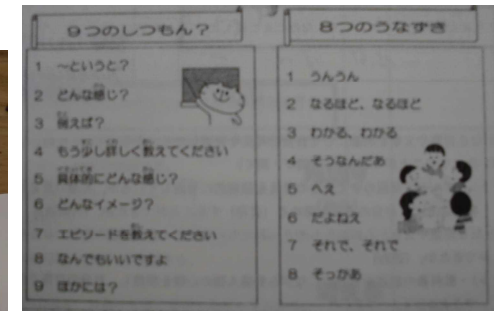 9つのしつもん?
1 ~というと?
2 どんな感じ?
3 例えば?
4 もう少し詳しく教えてください
5 具体的にどんな感じ?
6 どんなイメージ?
7 エピソードを教えてください
8 なんでもいいですよ
9 ほかには?
8つのうなずき
1 うんうん
2 なるほど、なるほど
3 わかる、わかる
4 そうなんだあ
5 へえ
6 だよねえ
7 それで、それで
8 そっかあ